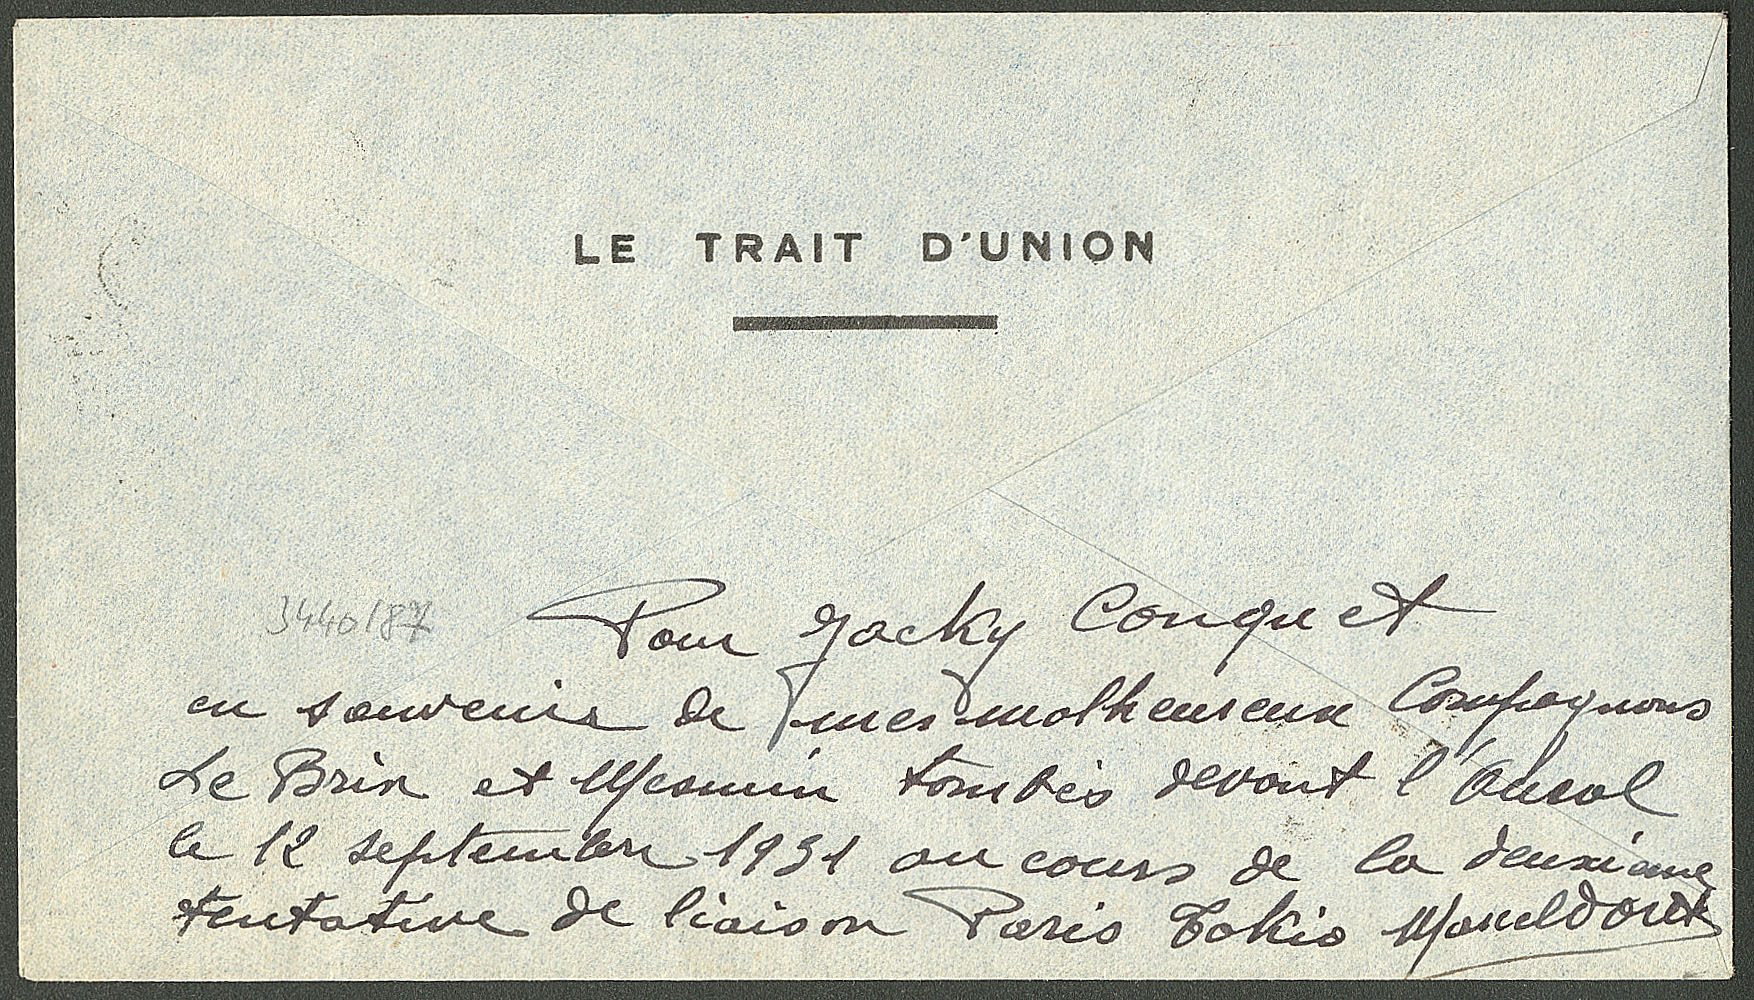 LE TRAIT D'UNION
3440/87
Pour Jacky Conquet
en souvenir de mes malheureux Compagnons
Le Brix et Mesmin tombés devant l'Oural
le 12 septembre 1931 au cours de la deuxième
tentative de liaison Paris Tokio Marcel Doret